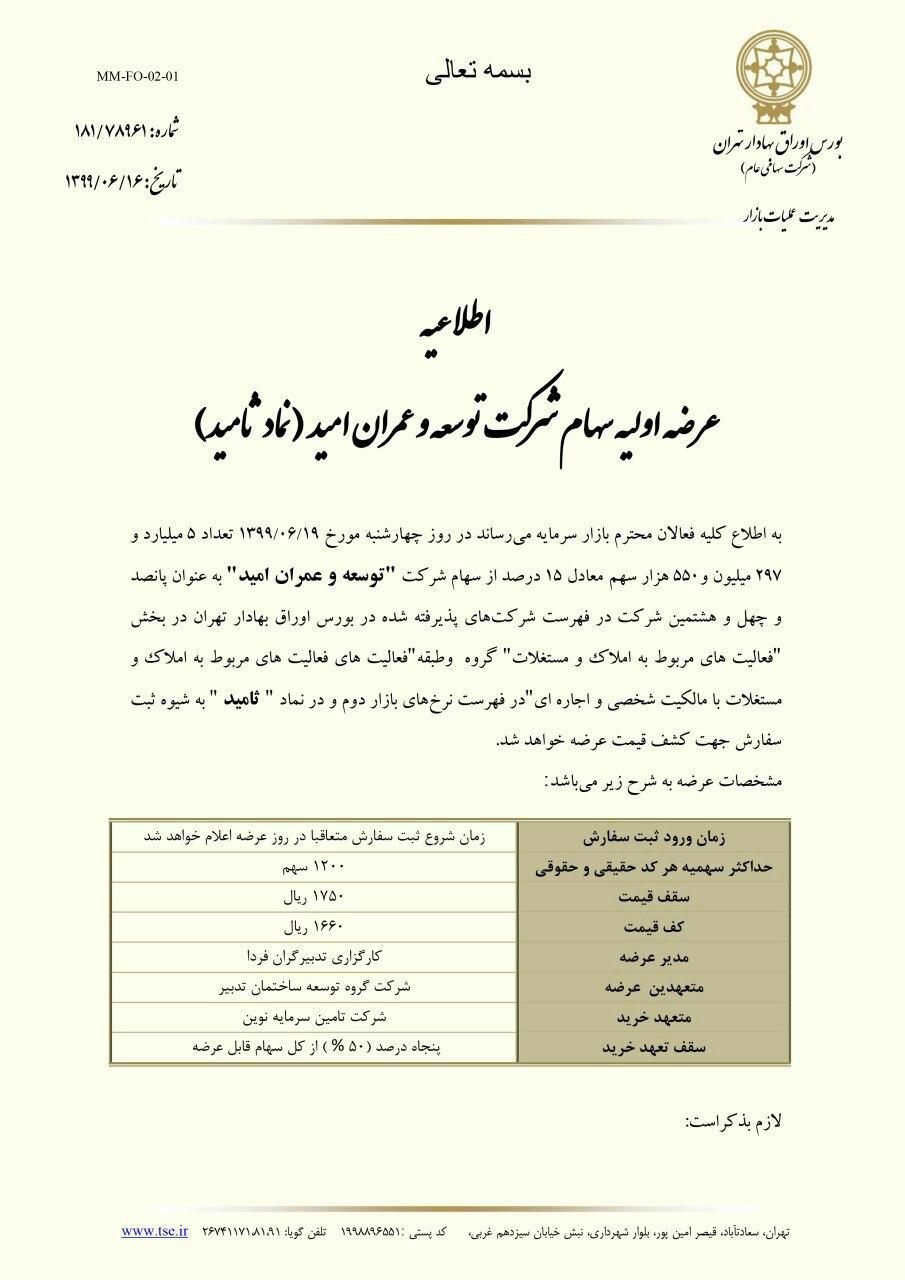 بسمه تعالی
MM-FO-02-01
شماره: ۱۸۱/۷۸۹۶۱
تاریخ: ۱۳۹۹/۰۶/۱۶
بورس اوراق بهادار تهران
(شرکت سهامی عام)
مدیریت عملیات بازار
اطلاعیه
عرضه اولیه سهام شرکت توسعه و عمران امید (نماد ثامید)
به اطلاع کلیه فعالان محترم بازار سرمایه می‌رساند در روز چهارشنبه مورخ ۱۳۹۹/۰۶/۱۹ تعداد ۵ میلیارد و
۲۹۷ میلیون و ۵۵۰ هزار سهم معادل ۱۵ درصد از سهام شرکت "توسعه و عمران امید" به عنوان پانصد
و چهل و هشتمین شرکت در فهرست شرکت‌های پذیرفته شده در بورس اوراق بهادار تهران در بخش
"فعالیت های مربوط به املاک و مستغلات" گروه وطبقه"فعالیت های فعالیت های مربوط به املاک و
مستغلات با مالکیت شخصی و اجاره ای"در فهرست نرخ‌های بازار دوم و در نماد " ثامید " به شیوه ثبت
سفارش جهت کشف قیمت عرضه خواهد شد.
مشخصات عرضه به شرح زیر می‌باشد:
زمان ورود ثبت سفارش زمان شروع ثبت سفارش متعاقبا در روز عرضه اعلام خواهد شد
حداکثر سهمیه هر کد حقیقی و حقوقی ۱۲۰۰ سهم
سقف قیمت ۱۷۵۰ ریال
کف قیمت ۱۶۶۰ ریال
مدیر عرضه کارگزاری تدبیرگران فردا
متعهدین عرضه شرکت گروه توسعه ساختمان تدبیر
متعهد خرید شرکت تامین سرمایه نوین
سقف تعهد خرید پنجاه درصد (۵۰ %) از کل سهام قابل عرضه
لازم بذکراست:
تهران، سعادت‌آباد، قیصر امین پور، بلوار شهرداری، نبش خیابان سیزدهم غربی، کد پستی :۱۹۹۸۸۹۶۵۵۱ تلفن گویا: ۲۶۷۴۱۱۷۱،۸۱،۹۱ www.tse.ir